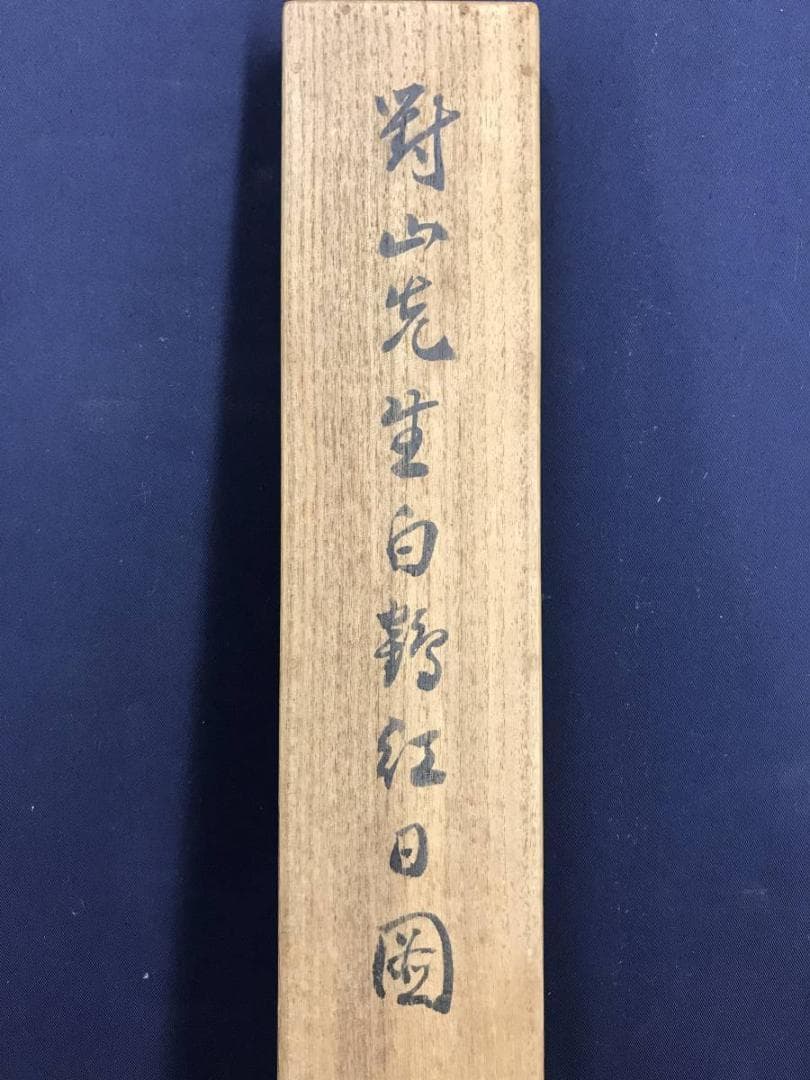 對山先生白鶴紅日圖